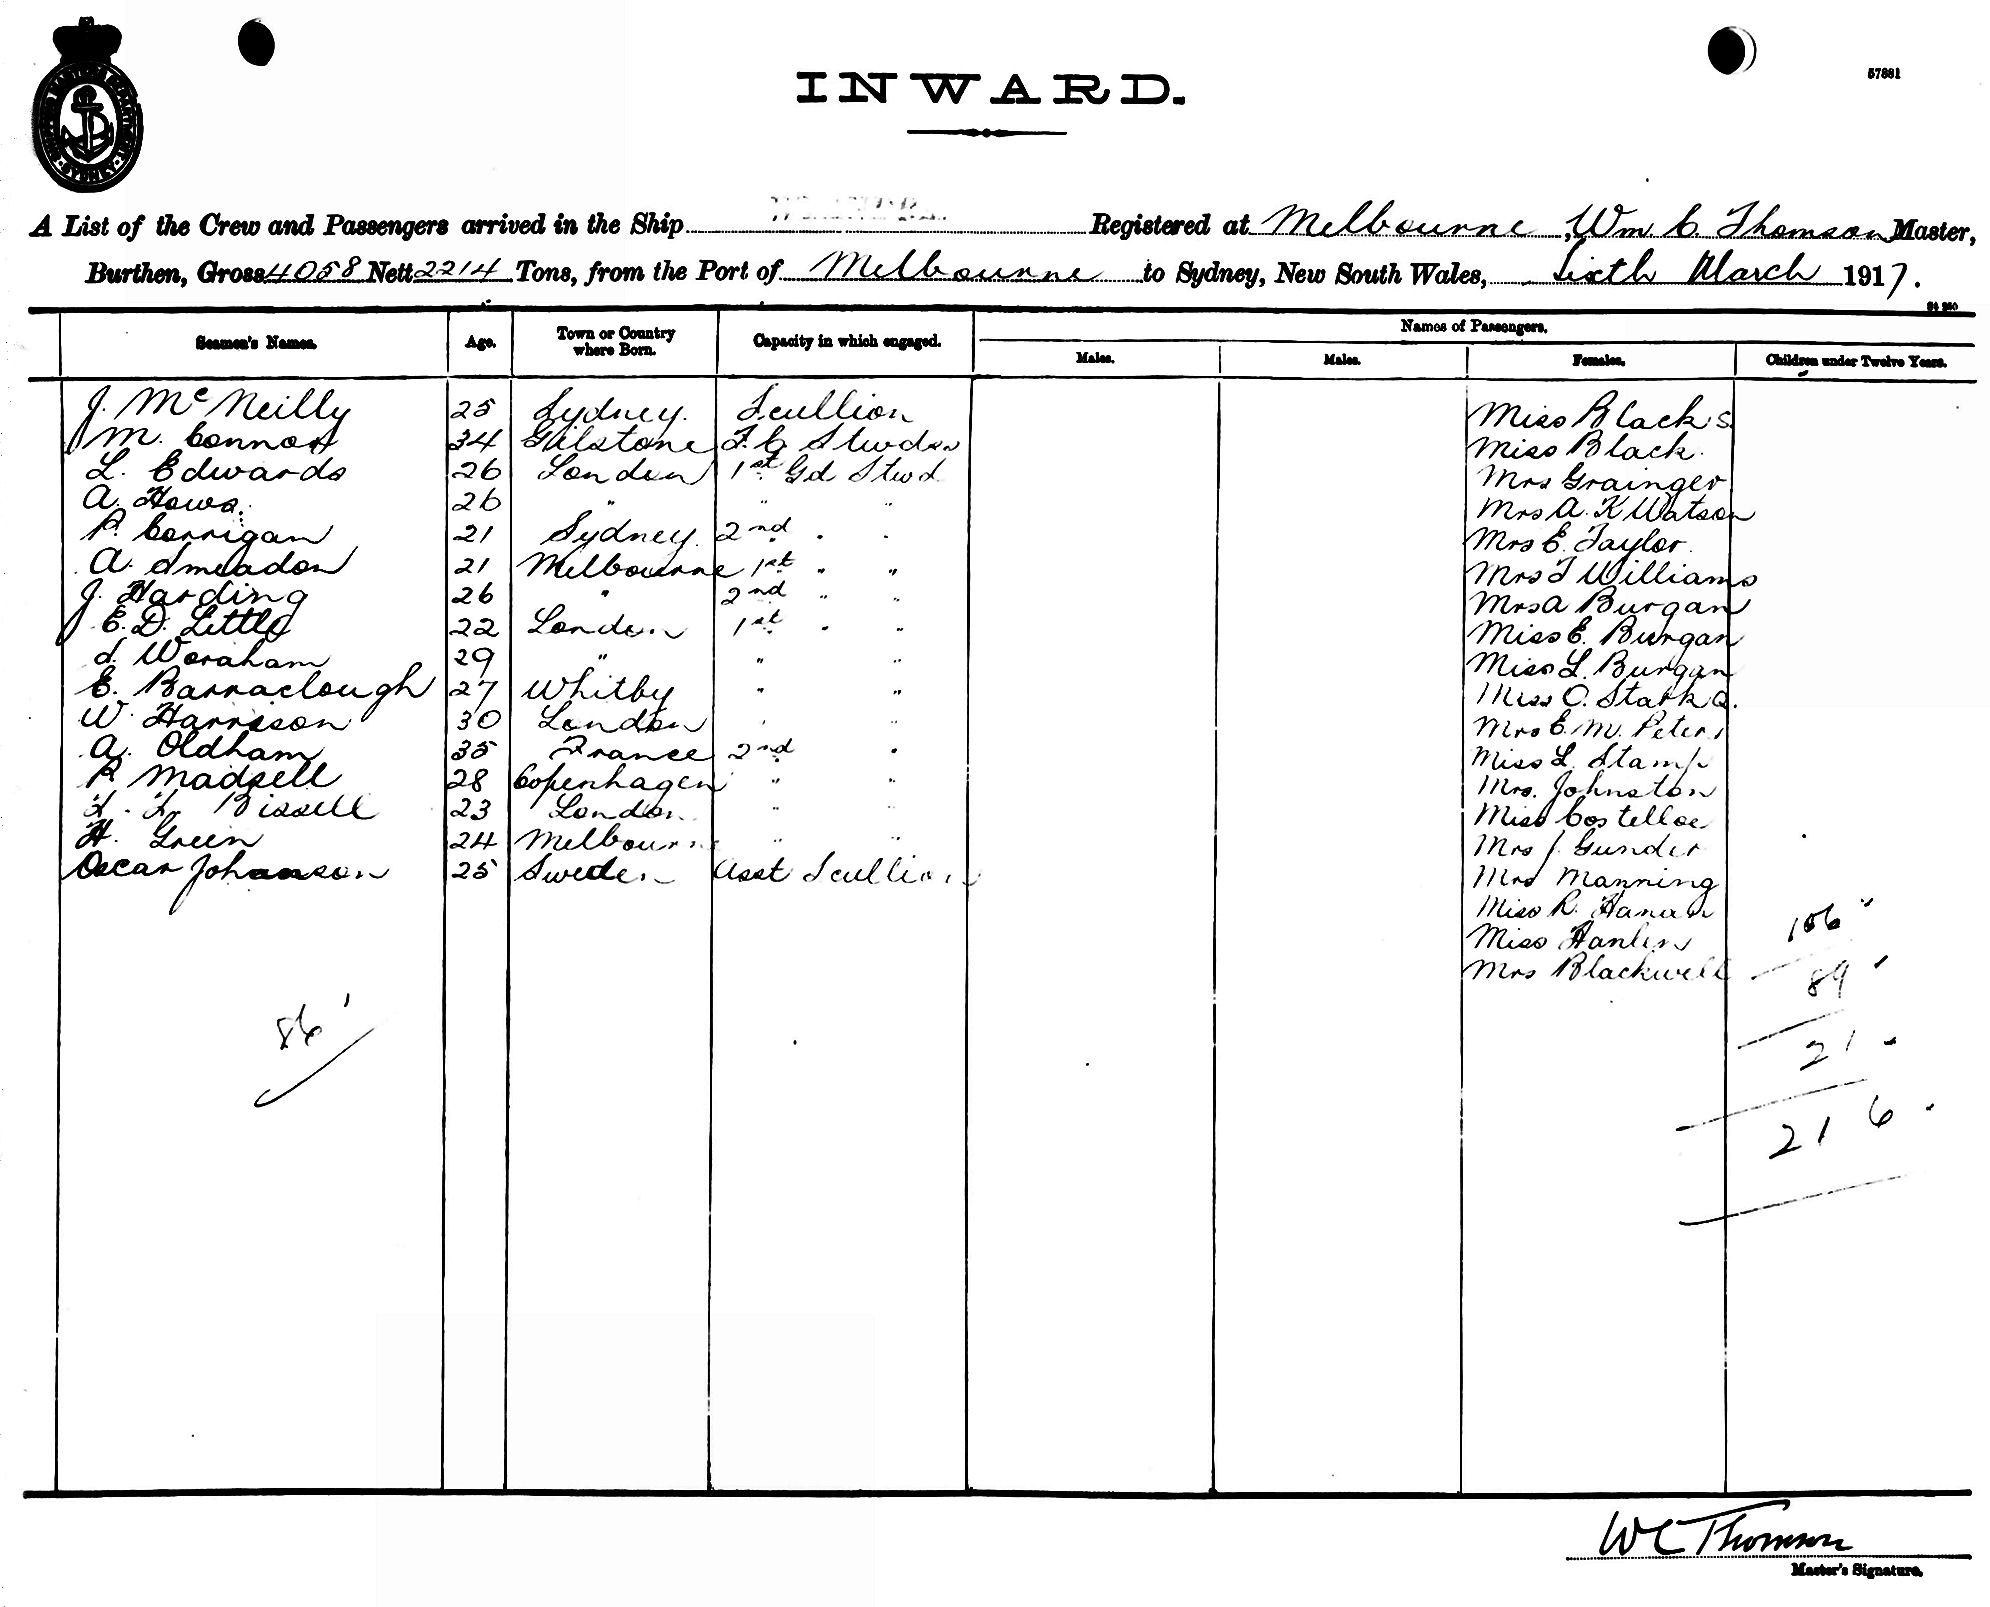 57881
INWARD.
A List of the Crew and Passengers arrived in the Ship Registered at Melbourne, Wm. C. Thomson Master,
Burthen, Gross 4058 Nett 2214 Tons, from the Port of Melbourne to Sydney, New South Wales, Sixth March 1917.
Seamen's Names. Age. Town or Country where Born. Capacity in which engaged. Names of Passengers.
Males. Males. Females. Children under Twelve Years.
J. McNeilly 25 Sydney. Scullion Miss Black S.
M. Connor 34 F. C. Stwdss Miss Black.
L. Edwards 26 London 1st Gd Stwd Mrs Grainger
A. Hows. 26 " " " Mrs A. K Watson
P. Corrigan 21 Sydney 2nd " " Mrs E. Taylor.
A. Smeadon 21 Melbourne 1st " " Mrs T Williams
J. Harding 26 " 2nd " " Mrs A Burgan
E. D. Little 22 London 1st " " Miss E. Burgan
S. Woraham 29 " " " Miss L. Burgan
E. Barraclough 27 Whitby " " Miss O. Stark
W. Harrison 30 London " " Mrs E. M. Peters
A. Oldham 35 France 2nd " Miss L. Stamp
P. Madsell 28 Copenhagen " " Mrs. Johnston
Bissell 23 London " " Miss Costelloe
H. Green 24 Melbourne " " Mrs J. Gunder
Oscar Johanson 25 Sweden Asst Scullion Mrs Manning
Miss R. Hanan
Miss Hanlin
Mrs Blackwell
106
89
21
216
86
WC Thomson
Master's Signature.